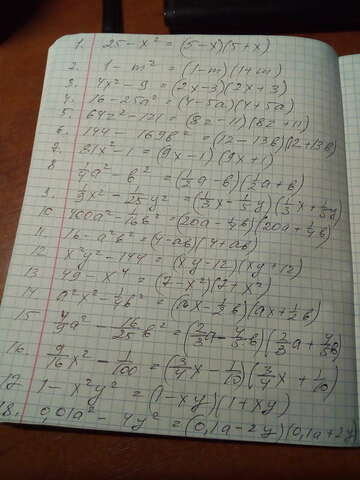 1. 25 - x² = (5-x)(5+x)
2. 1 - m² = (1-m)(1+m)
3. 4x² - 9 = (2x-3)(2x+3)
4. 16 - 25a² = (4-5a)(4+5a)
5. 64z² - 121 = (8z-11)(8z+11)
6. 144 - 169b² = (12-13b)(12+13b)
7. 81x² - 1 = (9x-1)(9x+1)
8 1/4a² - b² = (1/2a-b)(1/2a+b)
9. 1/9x² - 1/25y² = (1/3x - 1/5y)(1/3x + 1/5y)
10 400a² - 1/16b² = (20a - 1/4b)(20a + 1/4b)
11. 16 - a²b² = (4-ab)(4+ab)
12 x²y² - 144 = (xy-12)(xy+12)
13 49 - x⁴ = (7-x²)(7+x²)
14 a²x² - 1/4b² = (ax - 1/2b)(ax + 1/2b)
15 4/9a² - 16/25b² = (2/3a - 4/5b)(2/3a + 4/5b)
16. 9/16x² - 1/100 = (3/4x - 1/10)(3/4x + 1/10)
17 1 - x²y² = (1-xy)(1+xy)
18. 0,01a² - 4y² = (0,1a-2y)(0,1a+2y)